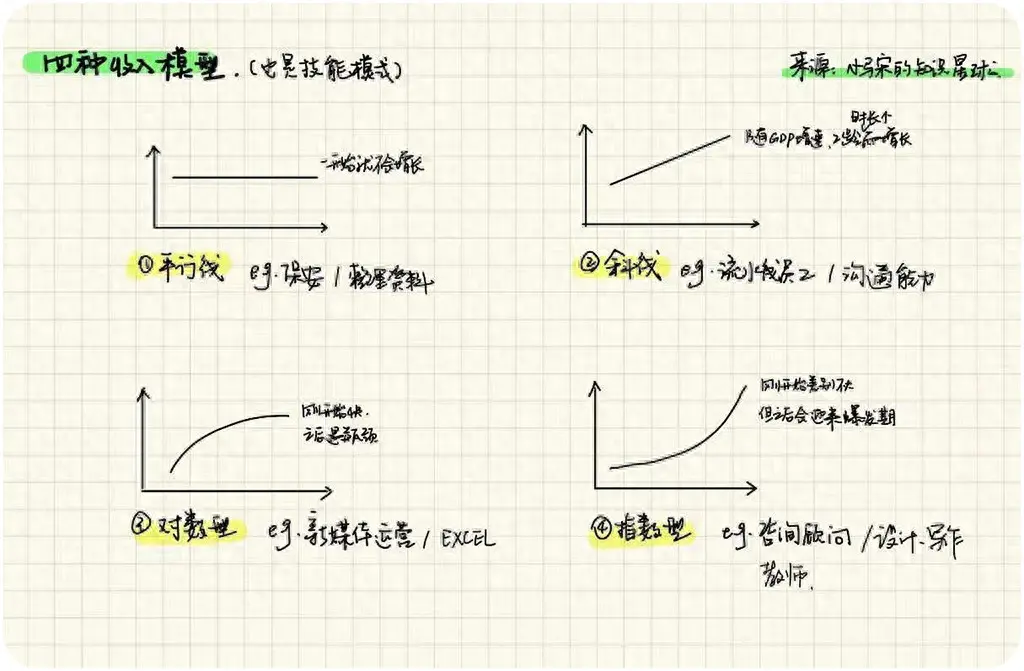 四种收入模型.(也是技能模式)
来源:小马宋的知识星球
一开始就不会增长
①平行线 eg.保安/整理资料
时长个
随GDP增速、工龄而增长
②斜线 eg.流水线员工/沟通能力
刚开始快.
之后遇瓶颈
③对数型 eg.新媒体运营/EXCEL
刚开始差别不大
但之后会迎来爆发期
④指数型 eg.咨询顾问/设计.写作
教师.